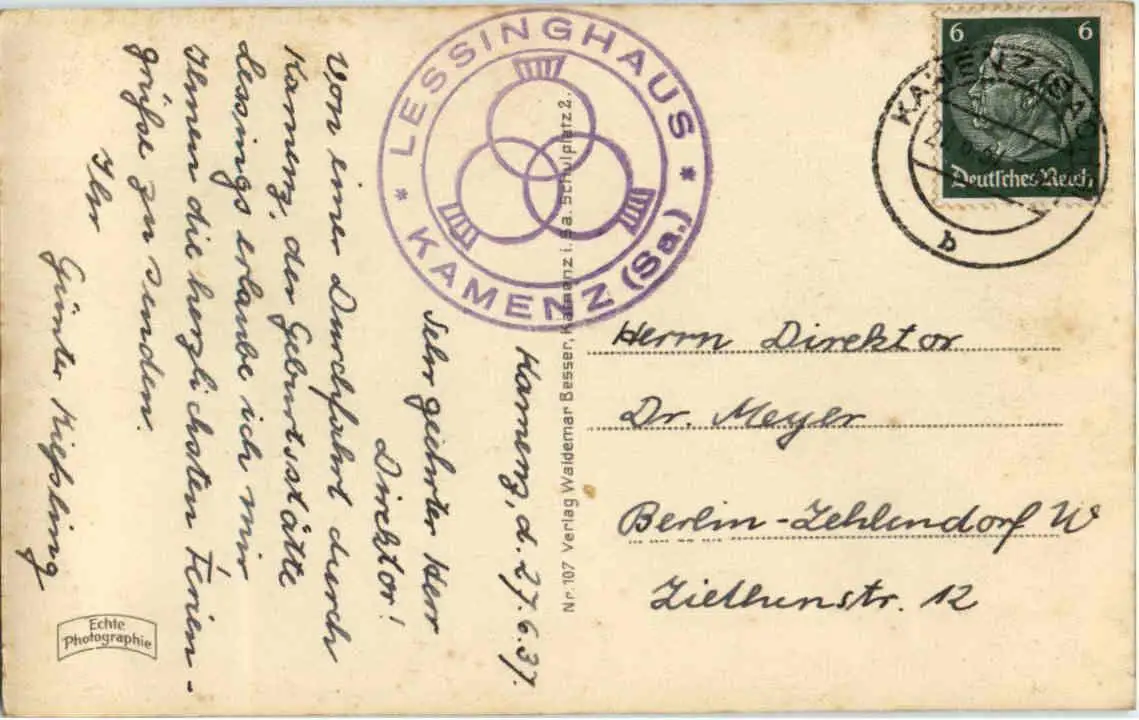 Kamenz, d. 27.6.37.
Sehr geehrter Herr
Direktor!
Von einer Durchfahrt durch
Kamenz, der Geburtsstätte
Lessings erlaube ich mir
Ihnen die herzlichsten Ferien-
grüße zu senden.
Ihr
Günter Kießling
Echte
Photographie
Nr. 107 Verlag Waldemar Besser, Kamenz i. Sa. Schulplatz 2.
* LESSINGHAUS *
KAMENZ (Sa.)
6 6
Deutsches Reich
KAMENZ (SACHS)
b
Herrn Direktor
Dr. Meyer
Berlin-Zehlendorf W
Ziethenstr. 12